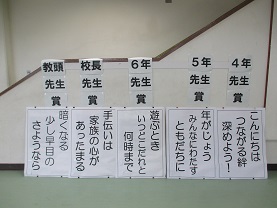 教頭
先生
賞
暗くなる
少し早目の
さようなら
校長
先生
賞
手伝いは
家族の心が
あったまる
6年
先生
賞
遊ぶとき
いつどこだれと
何時まで
5年
先生
賞
年がじょう
みんなにわたす
ともだちに
4年
先生
賞
こんにちは
つながる絆
深めよう!